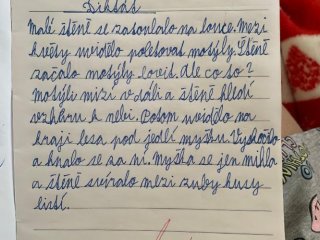 Diktát
Malé štěně se zatoulalo na louce. Mezi
květy uvidělo poletovat motýly. Štěně
začalo motýly lovit. Ale co to?
Motýli mizí v dáli a štěně hledí
vzhůru k nebi. Potom uvidělo na
kraji lesa pod jedlí myšku. Vyskočilo
a hnalo se za ní. Myška se jen mihla
a štěně svíralo mezi zuby kusy
listí.